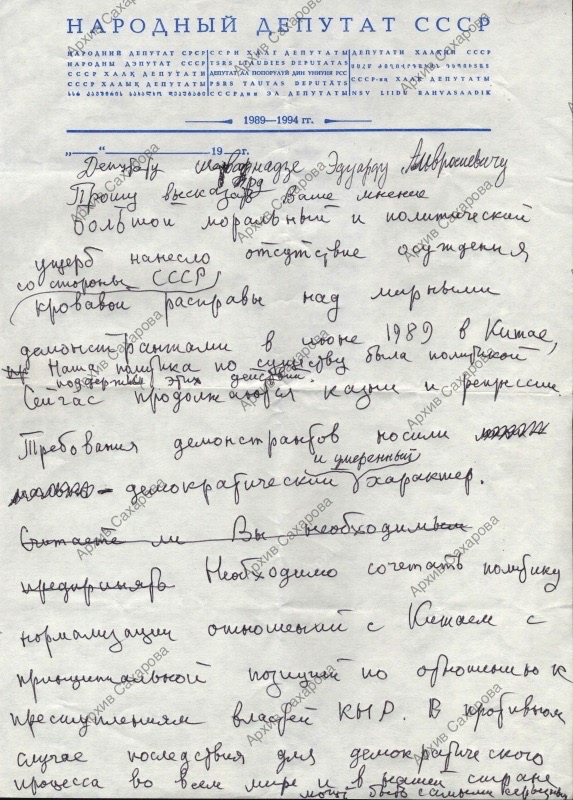 НАРОДНЫЙ ДЕПУТАТ СССР
НАРОДНИЙ ДЕПУТАТ СРСР
НАРОДНЫ ДЭПУТАТ СССР
СССР ХАЛҚ ДЕПУТАТИ
СССР ХАЛЫҚ ДЕПУТАТЫ
TSRS LIAUDIES DEPUTATAS
ДЕПУТАТ ДЕ ПОПОРУЛУЙ ДИН УНИУНЯ РСС
PSRS TAUTAS DEPUTĀTS
ДЕПУТАТИ ХАЛҚИИ СССР
СССР-иң ХАЛК ДЕПУТАТЫ
NSV LIIDU RAHVASAADIK
1989—1994 гг.
„——“ 19 г.
Депутату Шеварнадзе Эдуарду Амвросиевичу
Прошу высказать Ваше мнение
Большой моральный и политический
ущерб нанесло отсутствие осуждения
со стороны СССР
кровавой расправы над мирными
демонстрантами в июне 1989 в Китае,
Наша политика по существу была политикой
поддержки этих действий.
Сейчас продолжаются казни и репрессии.
Требования демонстрантов носили
и умеренный
— демократический характер.
Считаете ли Вы необходимым
предпринять Необходимо сочетать политику
нормализации отношений с Китаем с
принципиальной позицией по отношению к
преступлениям властей КНР. В противном
случае последствия для демократического
процесса во всем мире и в нашей стране
могут быть самыми серьезными
Архив Сахарова